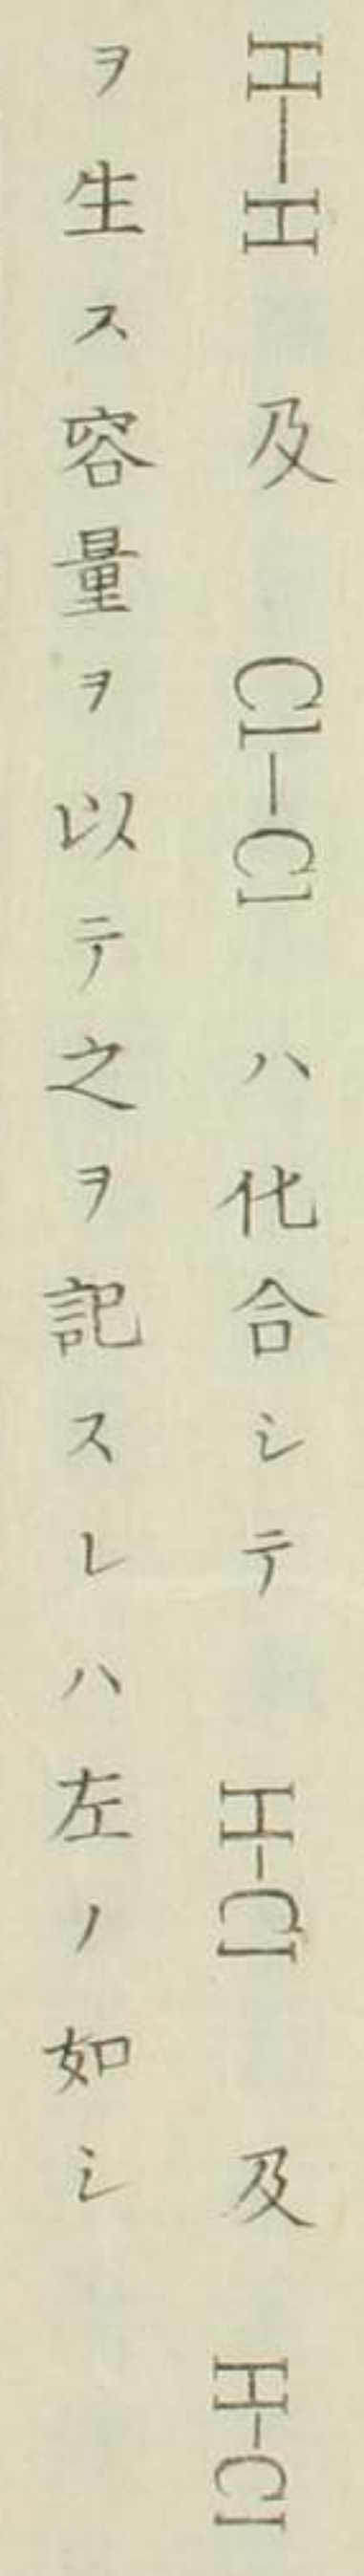 H—H 及 Cl—Cl ハ化合シテ H-Cl 及 H-Cl
ヲ生ス容量ヲ以テ之ヲ記スレハ左ノ如シ